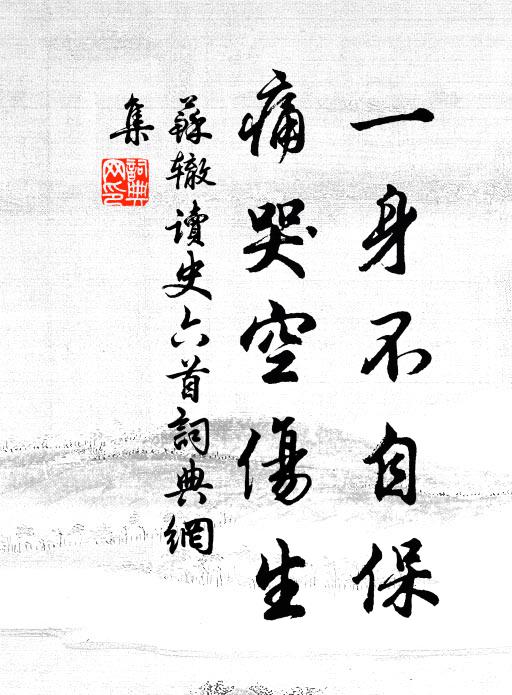 一身不自保
痛哭空傷生
蘇辙讀史六首詞典網
集
詞典
网印